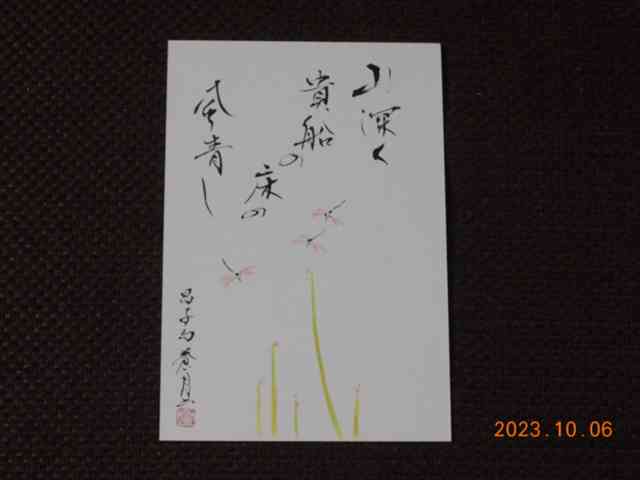 山深く
貴船の
床の
風青し
昌子句 春月書
2023.10.06